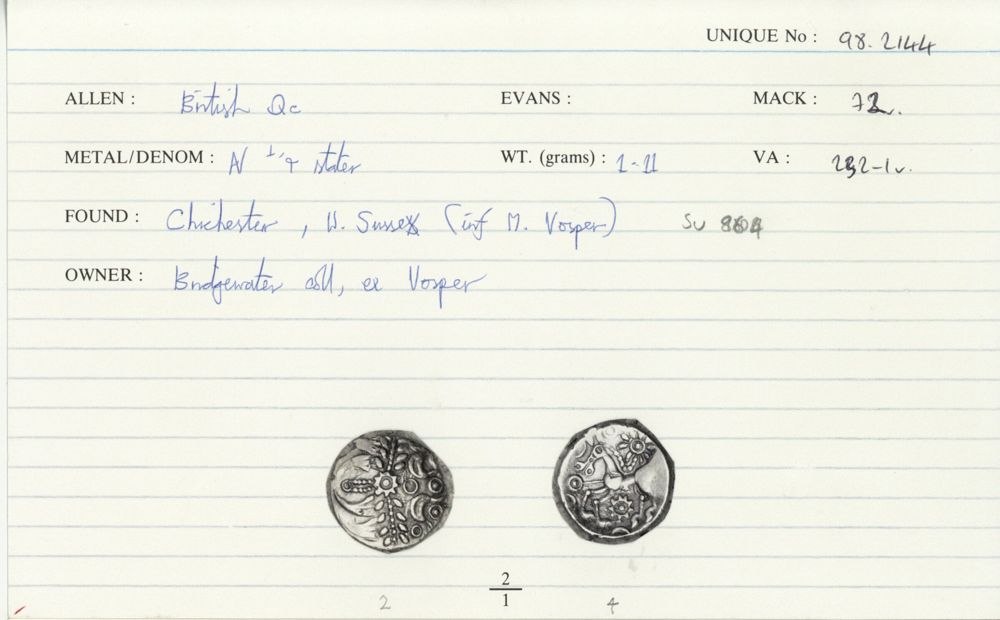 UNIQUE No : 98.2144
ALLEN : British Qc EVANS : MACK :
METAL/DENOM : N 1/4 stater WT. (grams) : 1-11 VA : 232-1
FOUND : Chichester, W. Sussex (inf M. Vosper) SU 804
OWNER : Bridgewater coll, ex Vosper
2
1
2 4